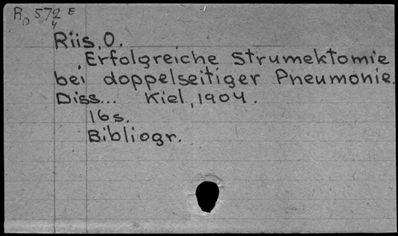 Riis, O.
Erfolgreiche Strumektomie
bei doppelseitiger Pneumonie.
Diss... Kiel, 1904.
16s.
Bibliogr.